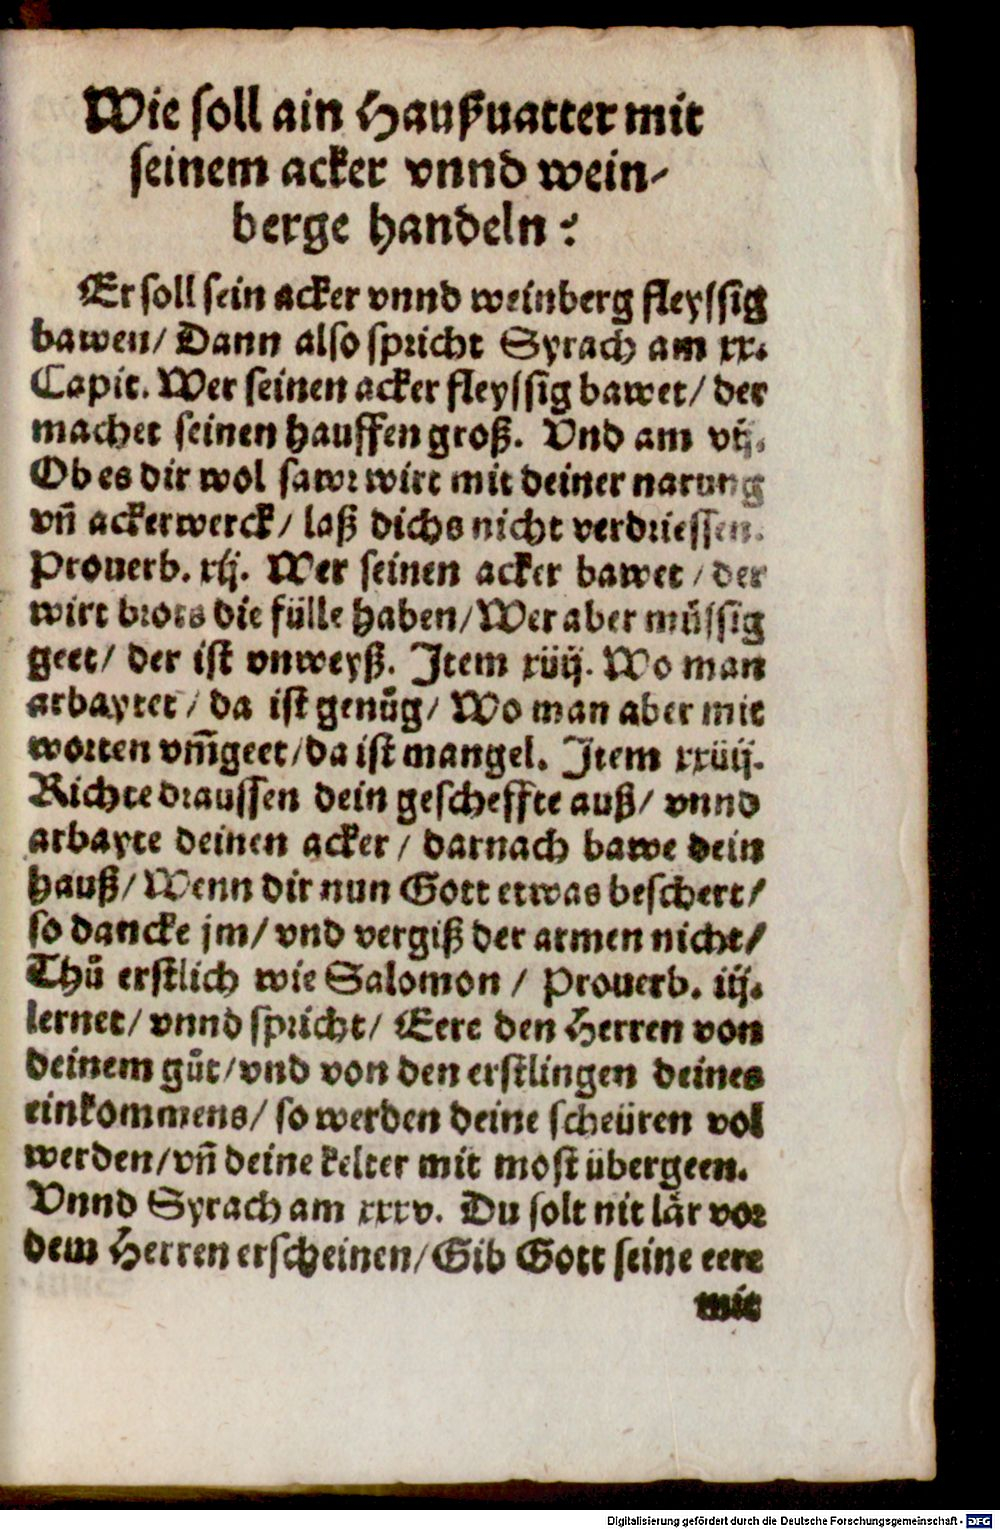 Wie soll ain Haußuatter mit
seinem acker vnnd wein-
berge handeln?
Er soll sein acker vnnd weinberg fleyssig
bawen/ Dann also spricht Syrach am xx.
Capit. Wer seinen acker fleyssig bawet/ der
machet seinen hauffen groß. Vnd am vij.
Ob es dir wol sawr wirt mit deiner narung
vñ ackerwerck/ laß dichs nicht verdriessen.
Prouerb. xij. Wer seinen acker bawet/ der
wirt brots die fülle haben/ Wer aber müssig
geet/ der ist vnweyß. Item xiiij. Wo man
arbaytet/ da ist genůg/ Wo man aber mit
worten vm̃geet/ da ist mangel. Item xxiiij.
Richte draussen dein gescheffte auß/ vnnd
arbayte deinen acker/ darnach bawe dein
hauß/ Wenn dir nun Gott etwas beschert/
so dancke jm/ vnd vergiß der armen nicht/
Thů erstlich wie Salomon/ Prouerb. iij.
lernet/ vnnd spricht/ Eere den Herren von
deinem gůt/ vnd von den erstlingen deines
einkommens/ so werden deine scheüren vol
werden/ vñ deine kelter mit most übergeen.
Vnnd Syrach am xxxv. Du solt nit lär vor
dem Herren erscheinen/ Gib Gott seine eere
mit
Digitalisierung gefördert durch die Deutsche Forschungsgemeinschaft - DFG